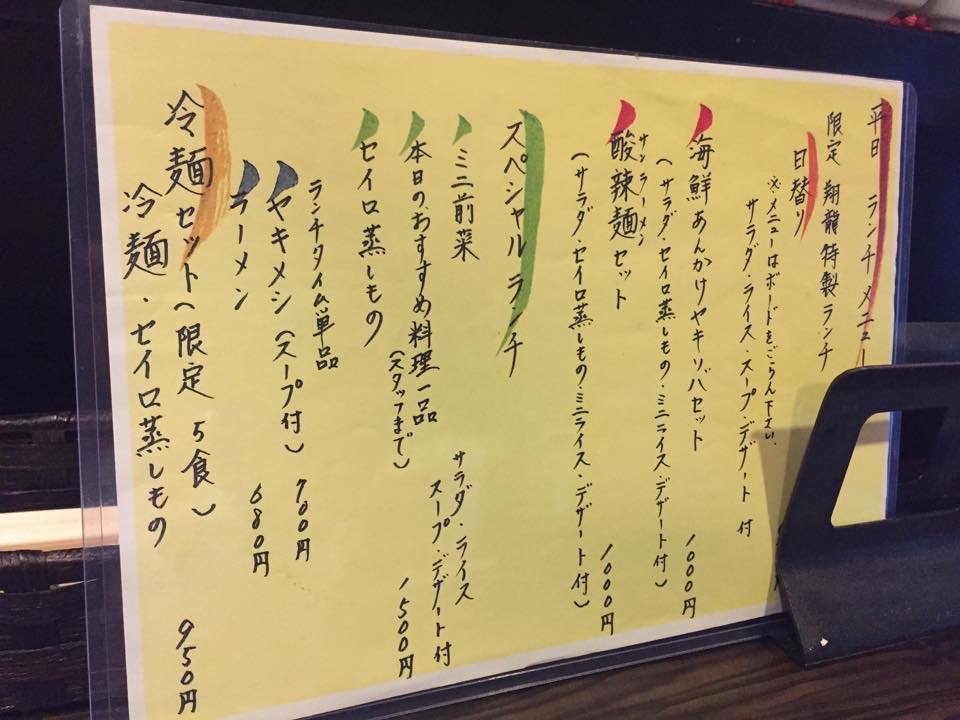 平日 ランチメニュー
限定 翔龍特製ランチ
日替り
サラダ・ライス・スープ・デザート 付
※メニューはボードをごらん下さい。
海鮮あんかけヤキソバセット
1000円
(サラダ・セイロ蒸しもの・ミニライス・デザート付)
サンラーメン
酸辣麺セット
1000円
(サラダ・セイロ蒸しもの・ミニライス・デザート付)
スペシャルランチ
ミニ前菜
サラダ・ライス
スープ・デザート付
本日のおすすめ料理一品
(スタッフまで)
1500円
セイロ蒸しもの
ランチタイム単品
ヤキメシ(スープ付) 700円
ラーメン 680円
冷麺セット(限定5食)
冷麺・セイロ蒸しもの
950円